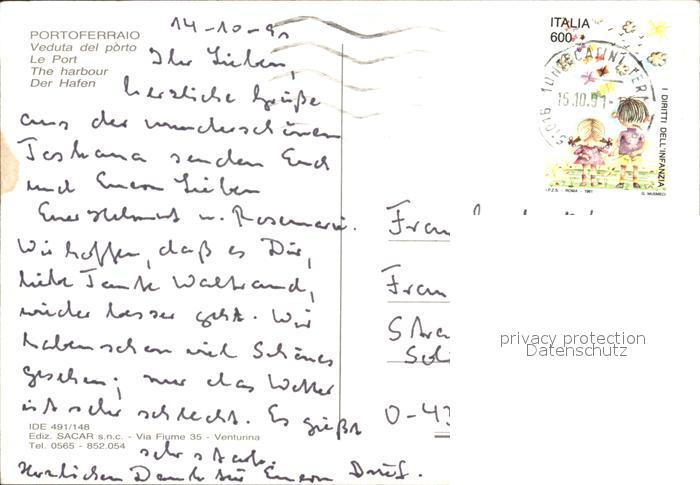 PORTOFERRAIO
Veduta del pòrto
Le Port
The harbour
Der Hafen
14-10-91
Ihr Lieben,
herzliche Grüße
aus der wunderschönen
Toskana senden Euch
und Euren Lieben
Euer Helmut u. Rosemarie.
Wir hoffen, daß es Dir,
liebe Tante Waltraud,
wieder besser geht. Wir
haben schon viel Schönes
gesehen; nur das Wetter
ist sehr schlecht. Es gießt
sehr stark.
Herzlichen Dank für Euren Brief.
IDE 491/148
Ediz. SACAR s.n.c. - Via Fiume 35 - Venturina
Tel. 0565 - 852.054
ITALIA
600
I DIRITTI DELL'INFANZIA
I.P.Z.S. - ROMA - 1991
G. MUSMECI
15.10.91
51016
Frau
Frau
Stra
O-43
privacy protection
Datenschutz